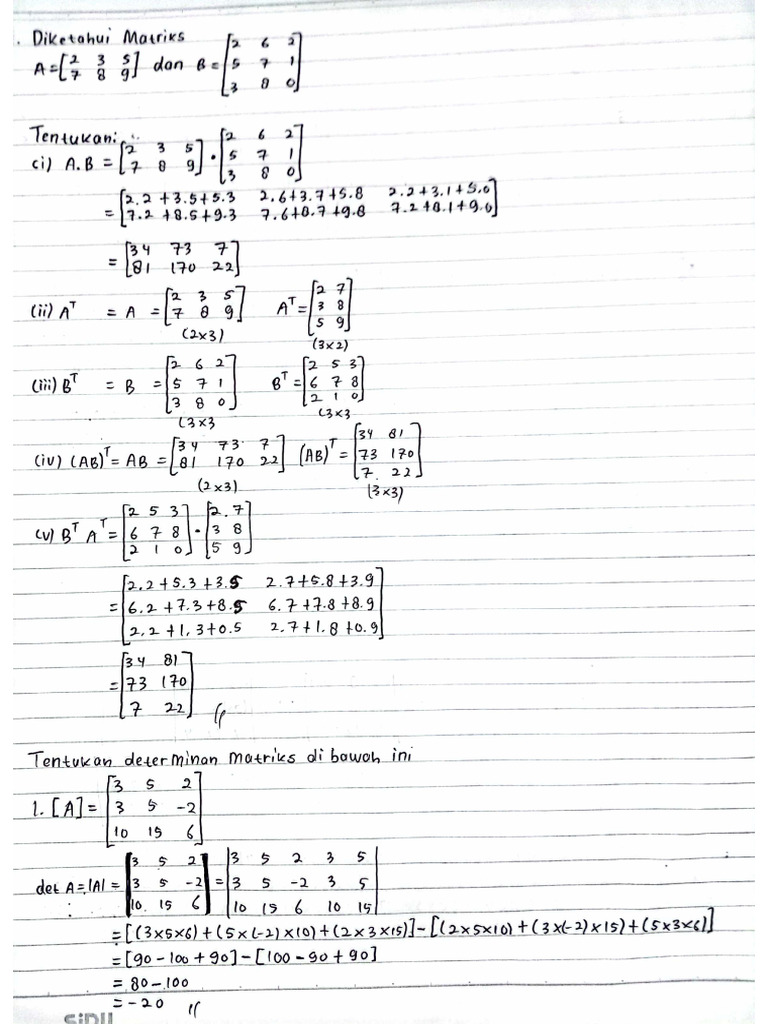 . Diketahui Matriks
A = [2 3 5 / 7 8 9] dan B = [2 6 2 / 5 7 1 / 3 8 0]
Tentukan:
(i) A.B = [2 3 5 / 7 8 9] . [2 6 2 / 5 7 1 / 3 8 0]
= [2.2+3.5+5.3 2.6+3.7+5.8 2.2+3.1+5.0 / 7.2+8.5+9.3 7.6+8.7+9.8 7.2+8.1+9.0]
= [34 73 7 / 81 170 22]
(ii) Aᵀ = A = [2 3 5 / 7 8 9] Aᵀ = [2 7 / 3 8 / 5 9]
(2x3) (3x2)
(iii) Bᵀ = B = [2 6 2 / 5 7 1 / 3 8 0] Bᵀ = [2 5 3 / 6 7 8 / 2 1 0]
(3x3 (3x3
(iv) (AB)ᵀ = AB = [34 73 7 / 81 170 22] (AB)ᵀ = [34 81 / 73 170 / 7 22]
(2x3) (3x3)
(v) Bᵀ Aᵀ = [2 5 3 / 6 7 8 / 2 1 0] . [2 7 / 3 8 / 5 9]
= [2.2+5.3+3.5 2.7+5.8+3.9 / 6.2+7.3+8.5 6.7+7.8+8.9 / 2.2+1.3+0.5 2.7+1.8+0.9]
= [34 81 / 73 170 / 7 22] //
Tentukan determinan Matriks di bawah ini
1. [A] = [3 5 2 / 3 5 -2 / 10 15 6]
det A = |A| = |3 5 2 / 3 5 -2 / 10 15 6| = |3 5 2 3 5 / 3 5 -2 3 5 / 10 15 6 10 15|
= [(3x5x6) + (5x(-2)x10) + (2x3x15)] - [(2x5x10) + (3x(-2)x15) + (5x3x6)]
= [90 - 100 + 90] - [100 - 90 + 90]
= 80 - 100
= -20 //
SiDU